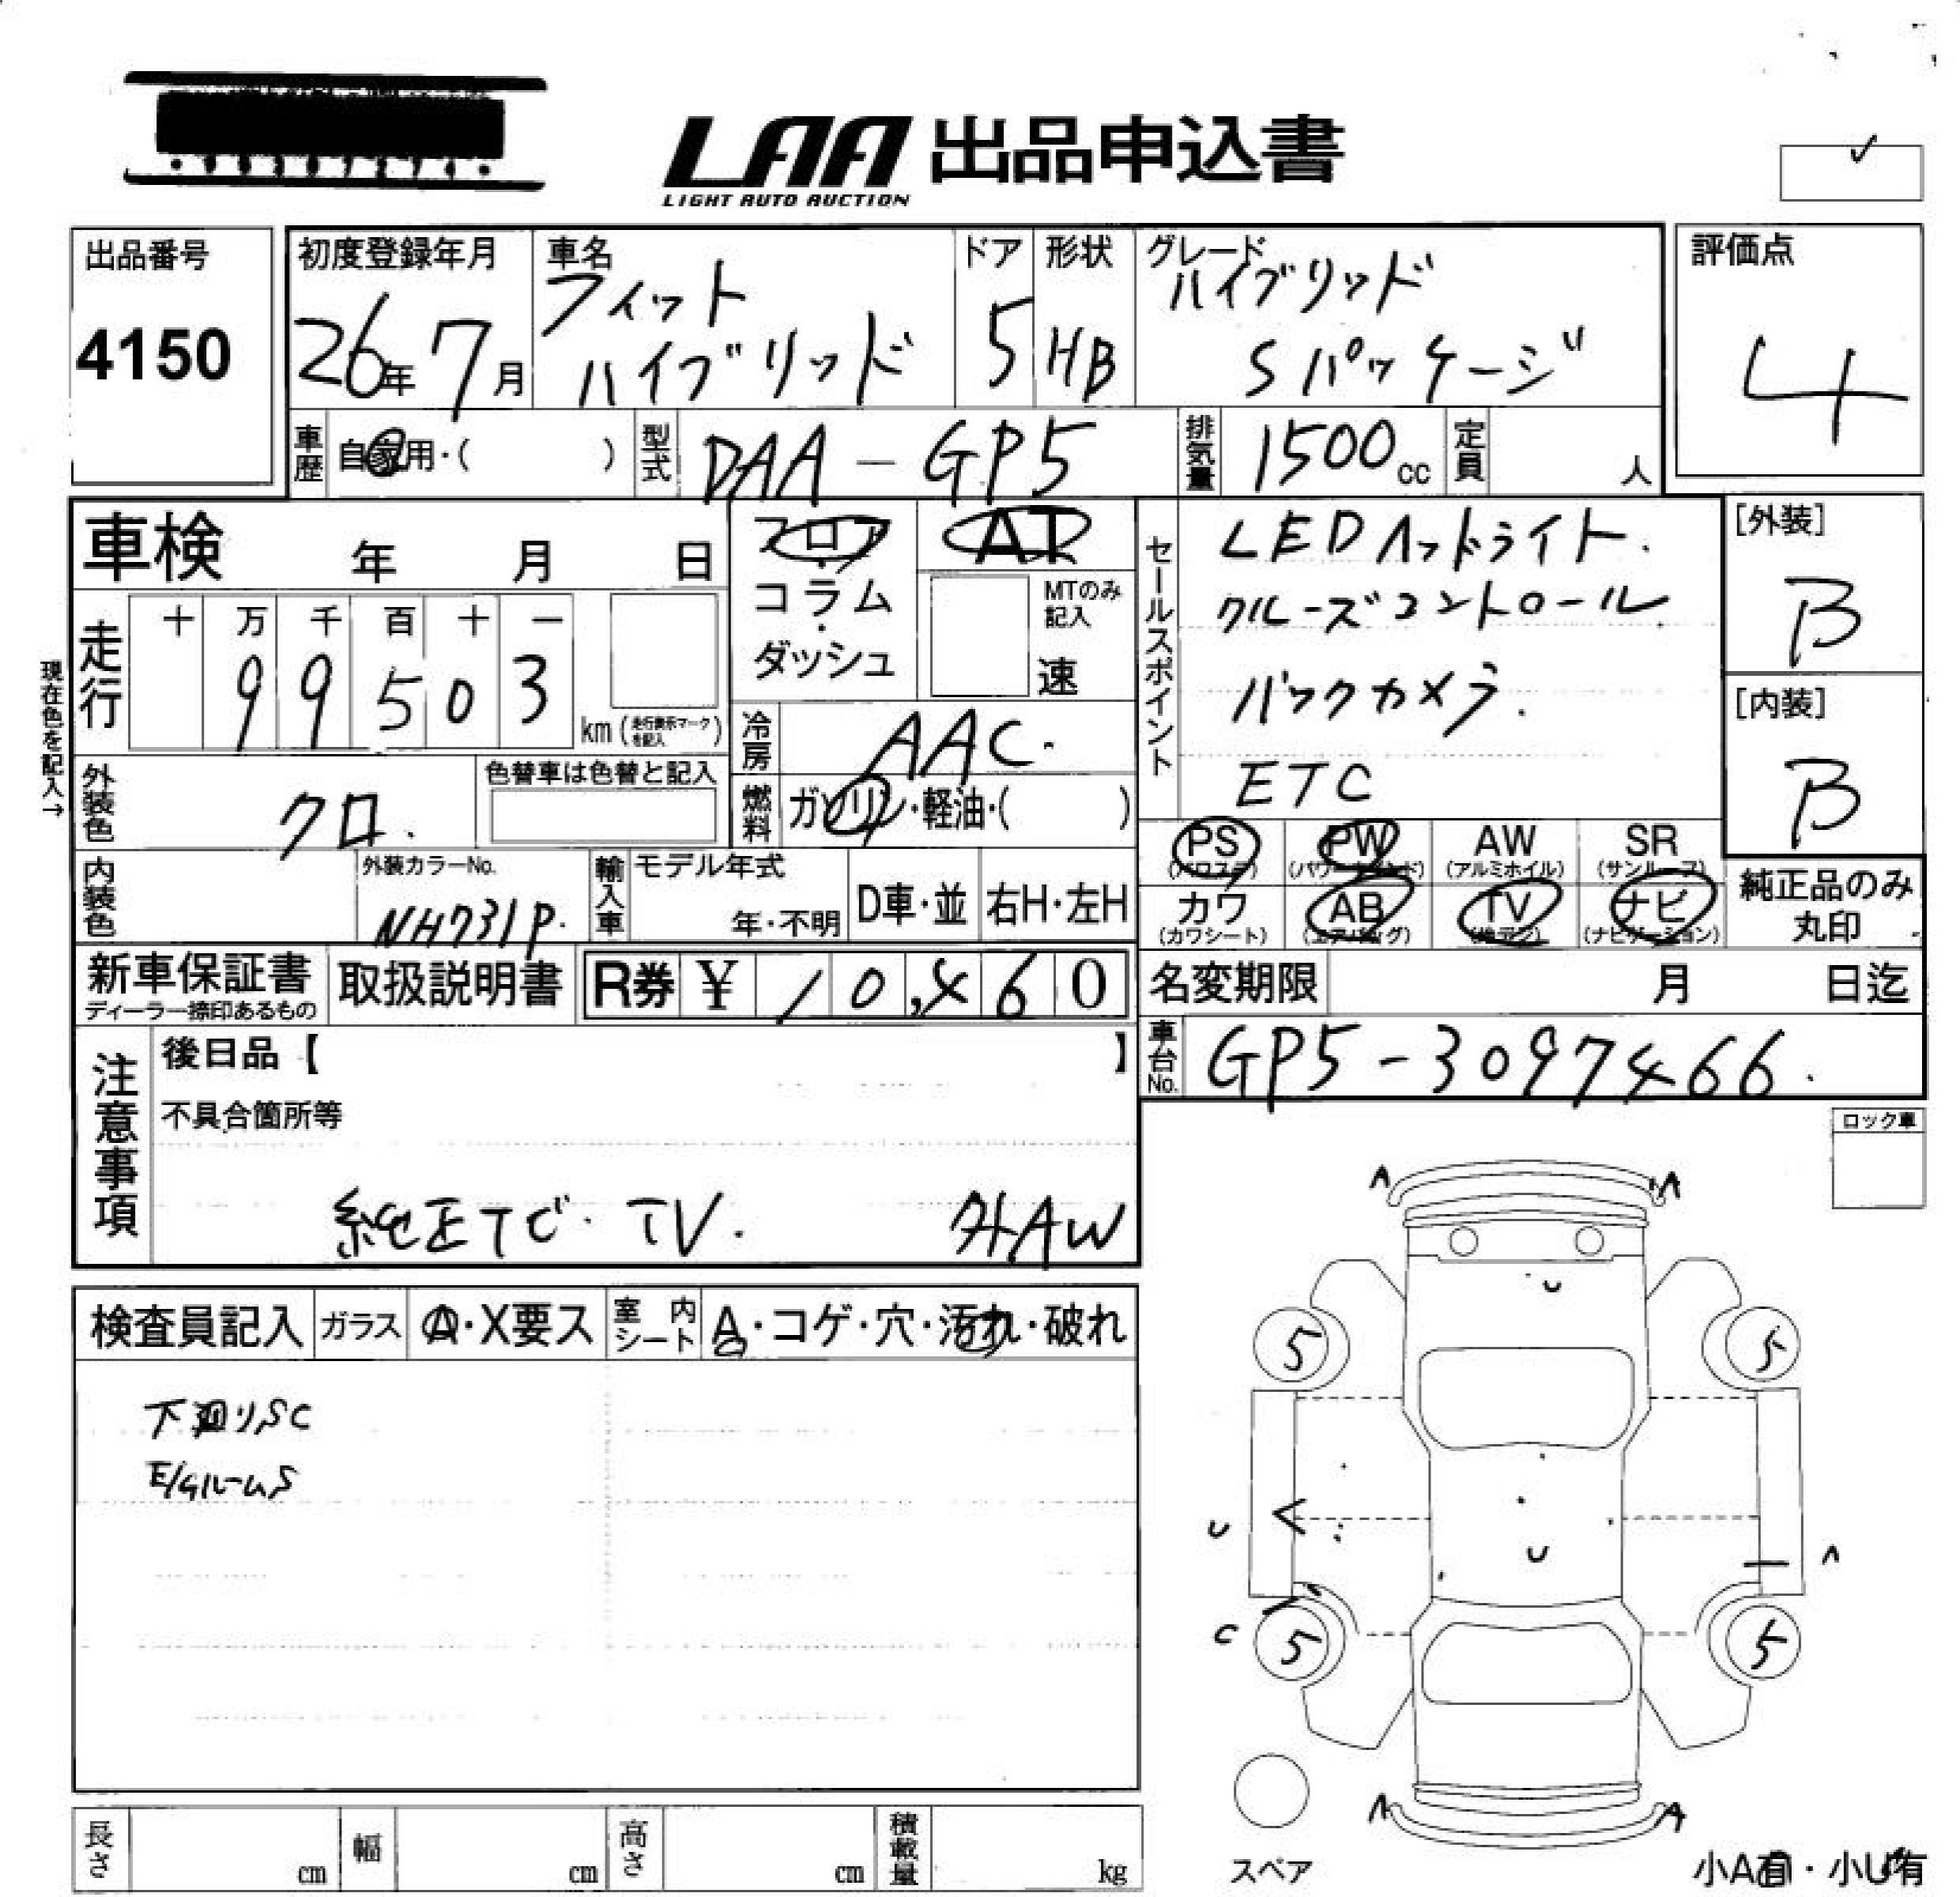 LAA 出品申込書
LIGHT AUTO AUCTION
出品番号
4150
初度登録年月
26年 7月
車名
フィット
ハイブリッド
ドア
5
形状
HB
グレード
ハイブリッド
Sパッケージ
評価点
4
車歴 自家用・( )
型式 DAA-GP5
排気量 1500cc
定員 人
車検 年 月 日
フロア
・
コラム
・
ダッシュ
AT
MTのみ
記入
速
セールスポイント
LEDヘッドライト.
クルーズコントロール
バックカメラ.
ETC
[外装]
B
[内装]
B
現在色を記入→
走行
十 万 千 百 十 一
9 9 5 0 3
km (走行表示マークを記入)
冷房 AAC.
燃料 ガソリン・軽油・( )
外装色 クロ.
色替車は色替と記入
内装色
外装カラーNo.
NH731P.
輸入車
モデル年式
年・不明
D車・並
右H・左H
PS PW AW SR
(パワステ) (パワーウインド) (アルミホイル) (サンルーフ)
カワ AB TV ナビ
(カワシート) (エアバッグ) (地デジ) (ナビゲーション)
純正品のみ
丸印
新車保証書
ディーラー捺印あるもの
取扱説明書
R券 ¥ 10,460
名変期限 月 日迄
車台No. GP5-3097466.
注意事項
後日品【 】
不具合箇所等
純正ナビ・TV. 社外AW
ロック車
検査員記入
ガラス
A・X要ス
室内シート
A・コゲ・穴・汚れ・破れ
下廻りSC
E/GルームS
A A
U
5 5
U
U
A
C
5 5
A A
スペア
小A有・小U有
長さ cm
幅 cm
高さ cm
積載量 kg